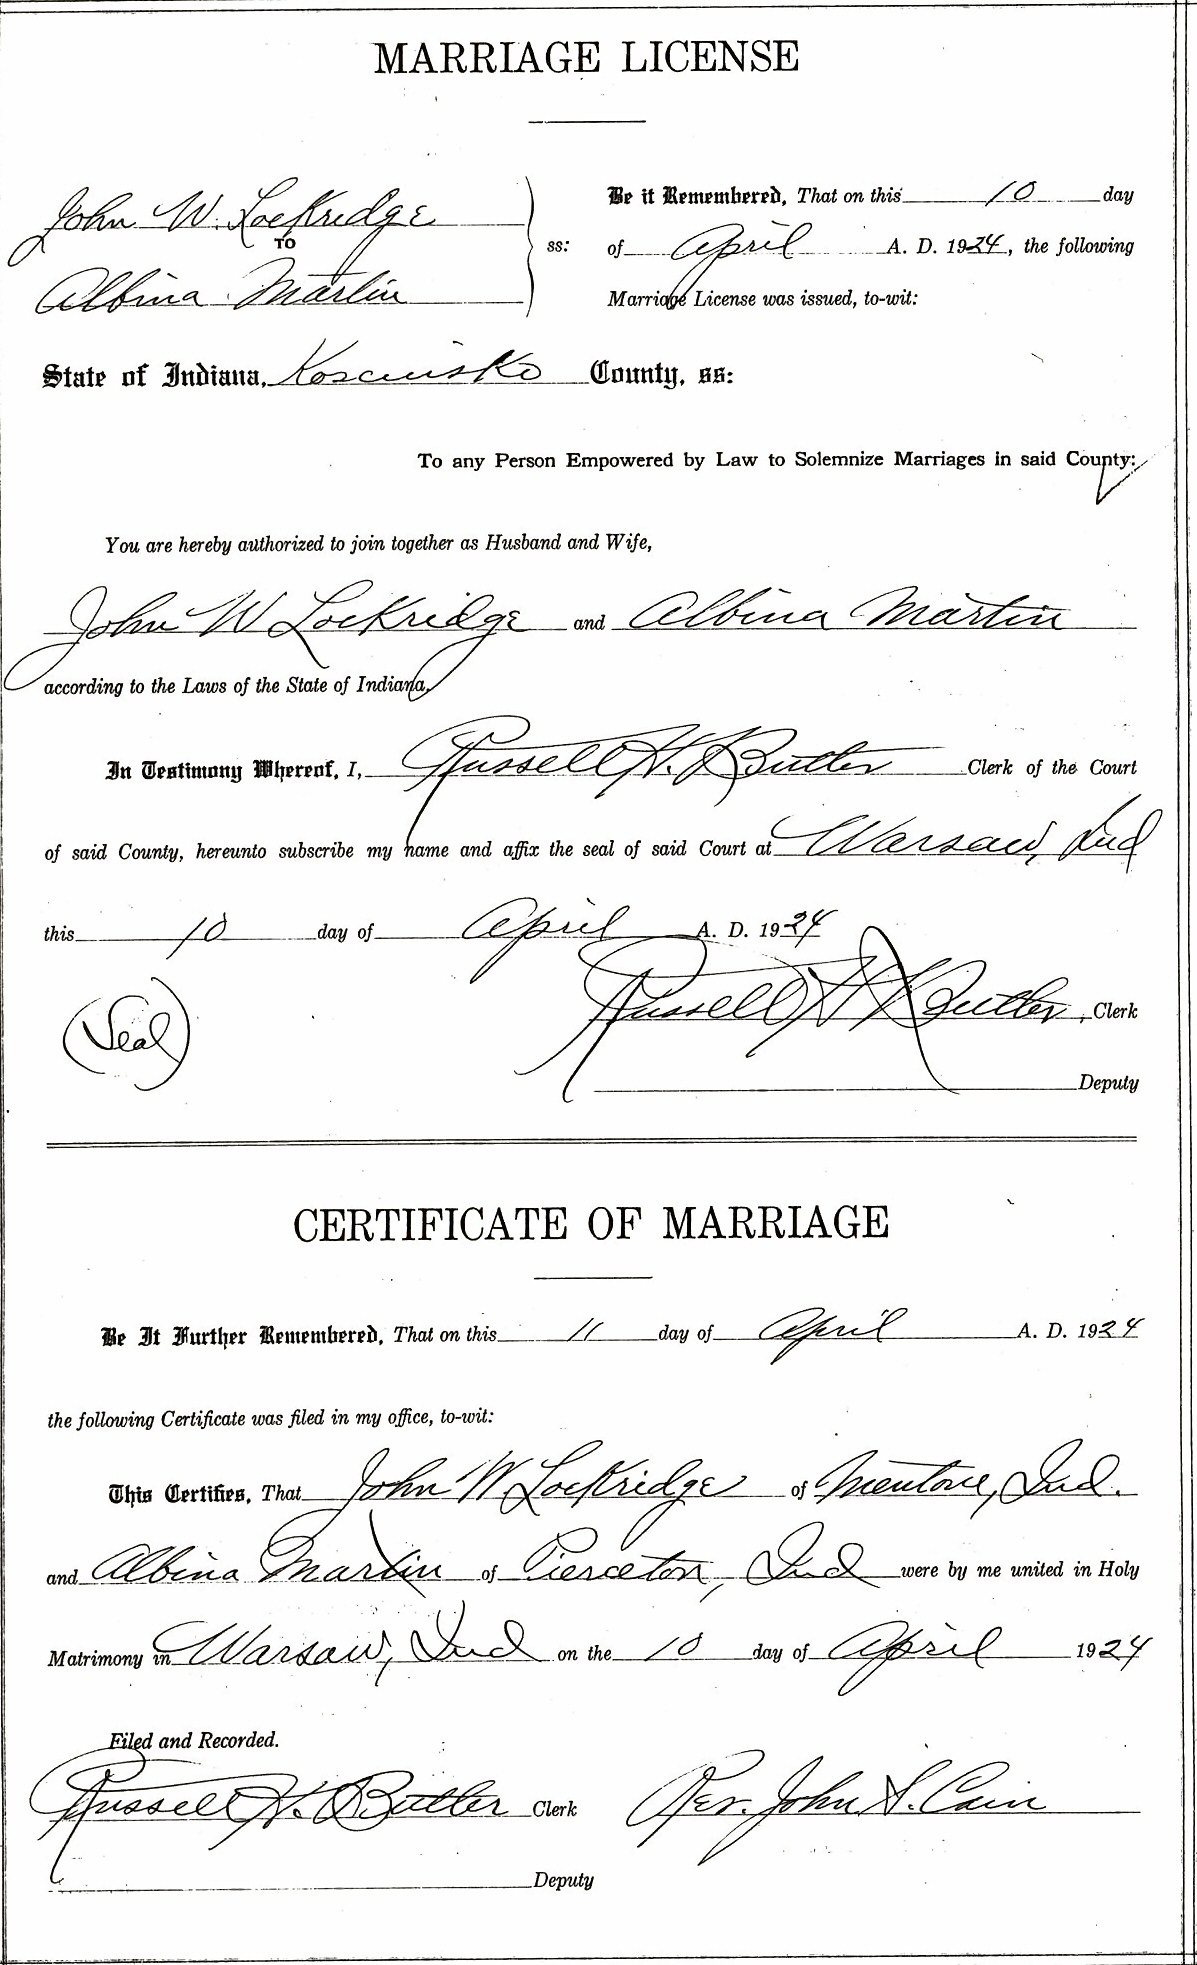 MARRIAGE LICENSE
John W. Lockridge
TO
Albina Martin
ss:
Be it Remembered, That on this 10 day
of April A. D. 1924, the following
Marriage License was issued, to-wit:
State of Indiana, Kosciusko County, ss:
To any Person Empowered by Law to Solemnize Marriages in said County:
You are hereby authorized to join together as Husband and Wife,
John W Lockridge and Albina Martin
according to the Laws of the State of Indiana.
In Testimony Whereof, I, Russell H. Butler Clerk of the Court
of said County, hereunto subscribe my name and affix the seal of said Court at Warsaw, Ind
this 10 day of April A. D. 1924
(Seal)
Russell H Butler, Clerk
Deputy
CERTIFICATE OF MARRIAGE
Be It Further Remembered, That on this 11 day of April A. D. 1924
the following Certificate was filed in my office, to-wit:
This Certifies, That John W Lockridge of Mentone, Ind.
and Albina Martin of Pierceton, Ind were by me united in Holy
Matrimony in Warsaw, Ind on the 10 day of April 1924
Filed and Recorded.
Russell H. Butler Clerk
Rev. John S. Cain
Deputy